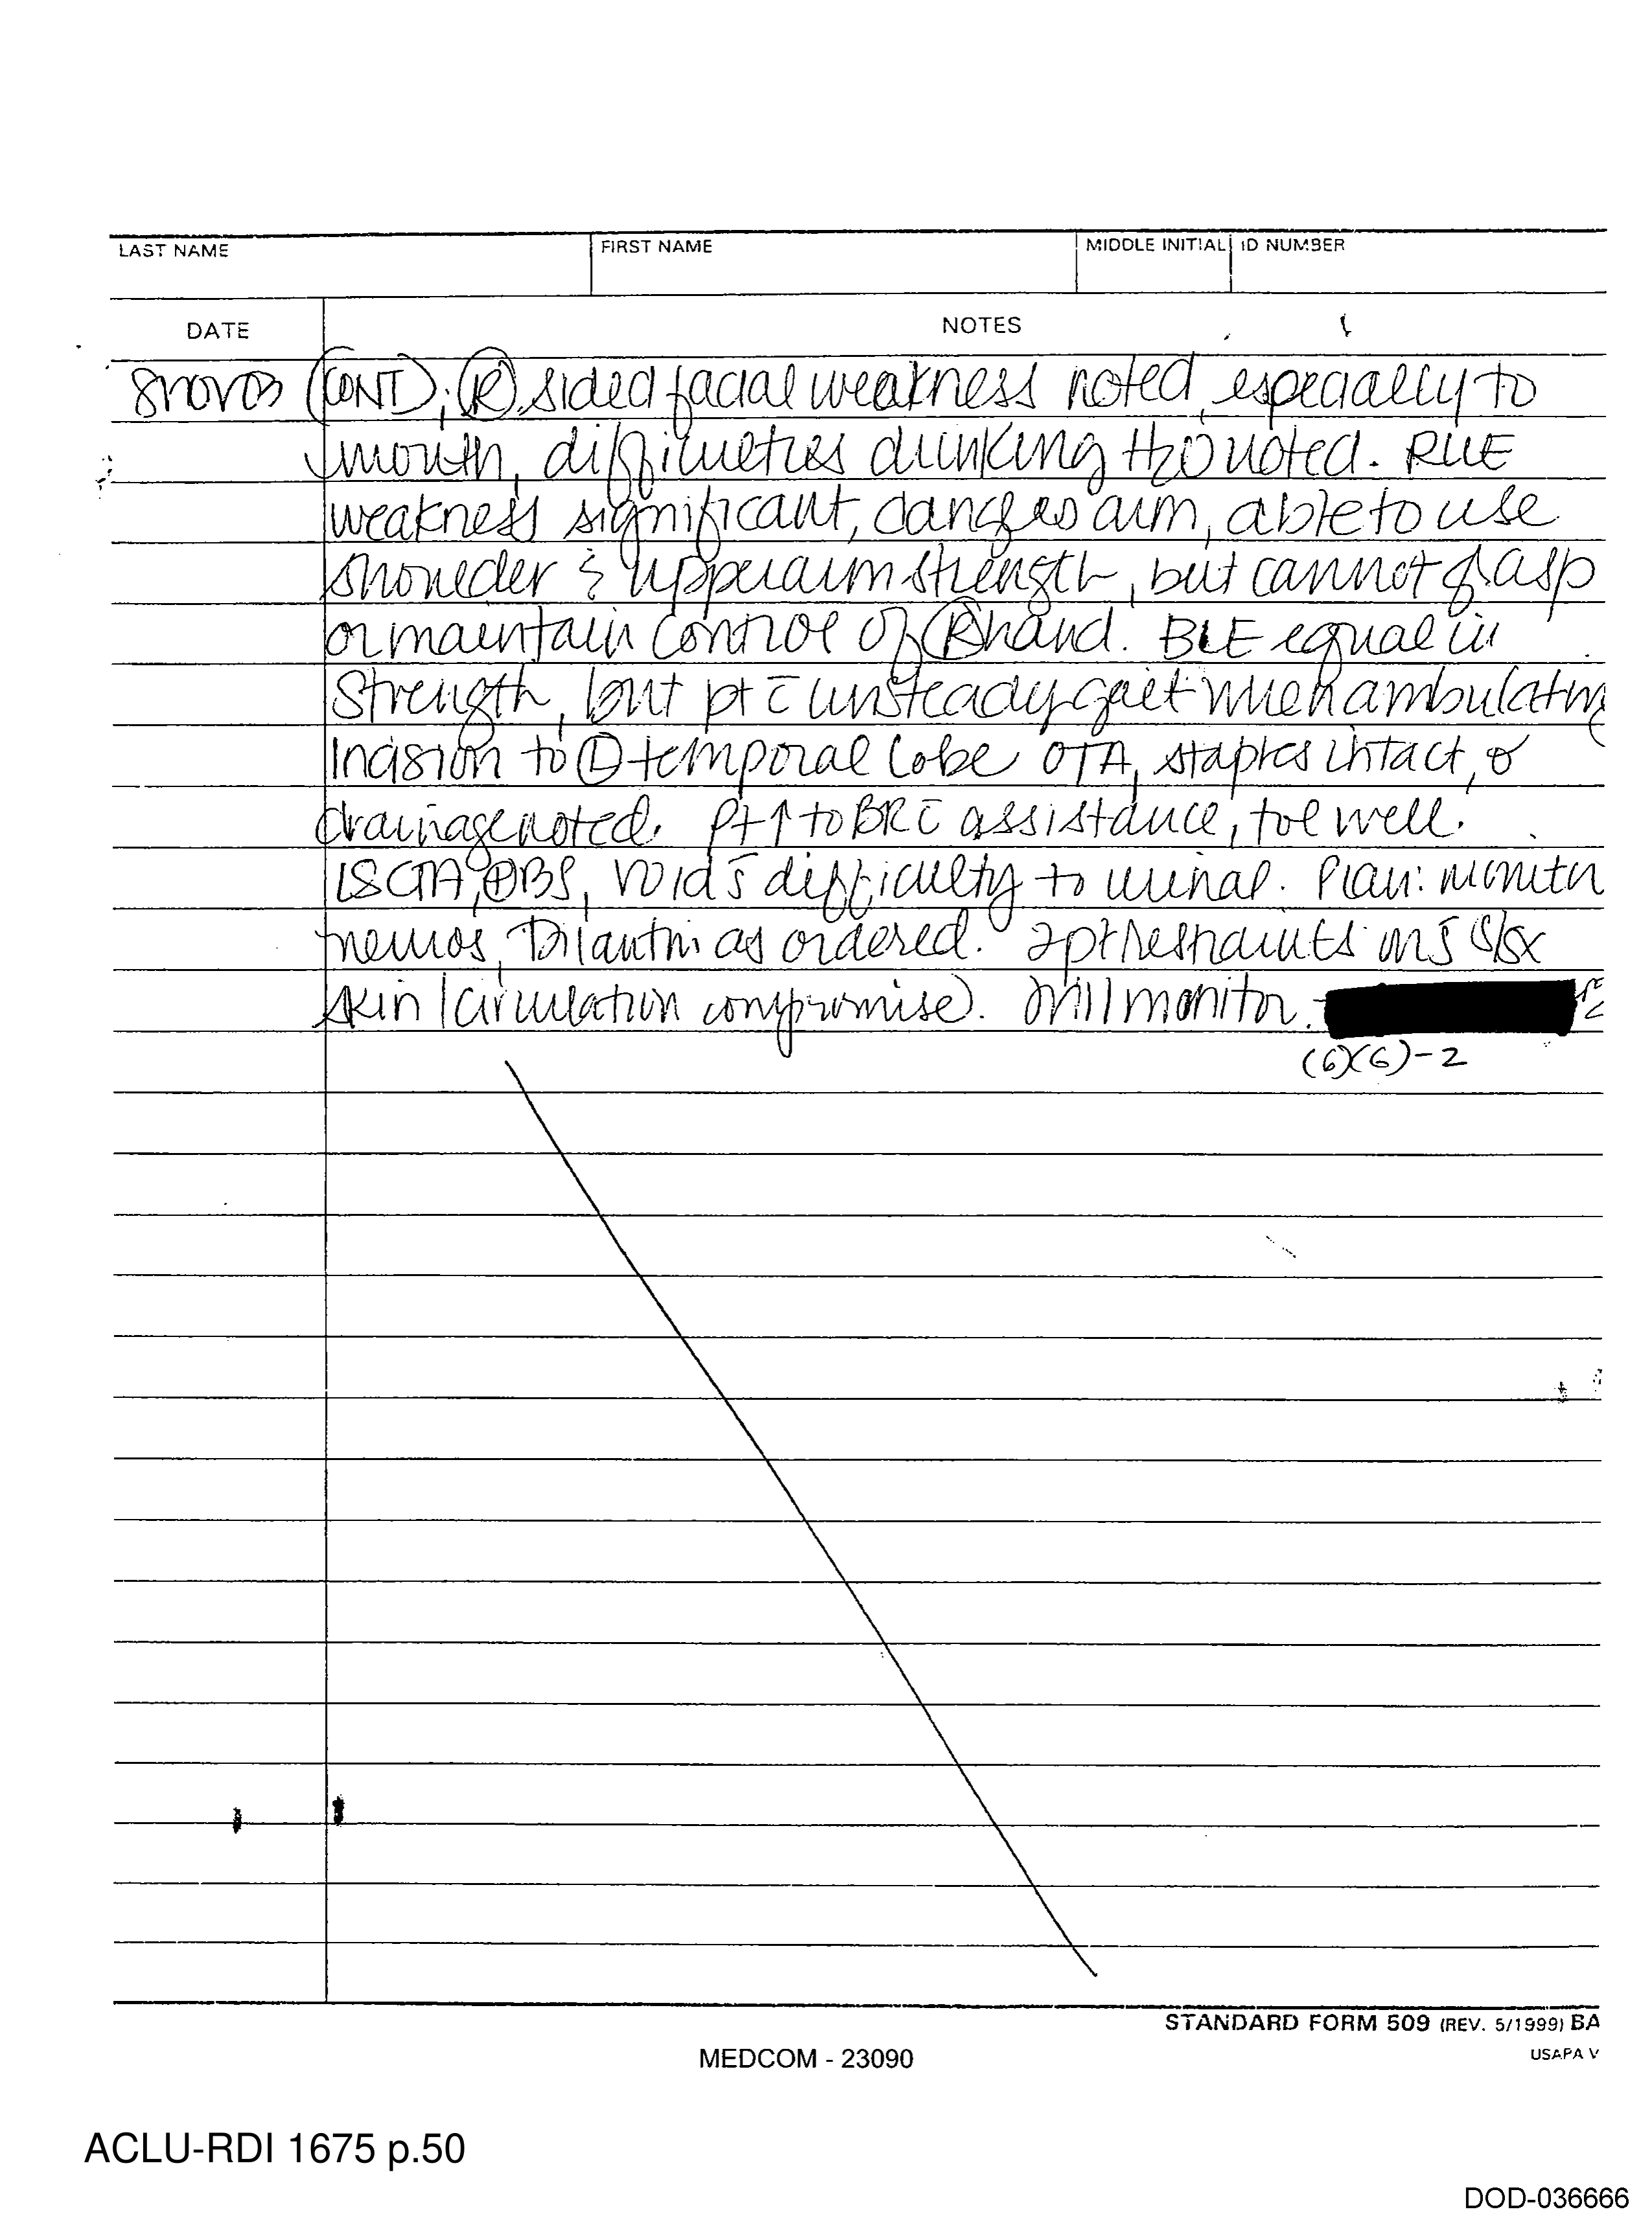 LAST NAME FIRST NAME MIDDLE INITIAL ID NUMBER
DATE NOTES
8NOV03 (CONT); Ⓡ sided facial weakness noted, especially to
mouth, difficulties drinking H2O noted. RUE
weakness significant, dangles arm, able to use
shoulder & upper arm strength, but cannot grasp
or maintain control of Ⓡ hand. BLE equal in
strength, but pt c̄ unsteady gait when ambulating
Incision to Ⓛ temporal lobe OTA, staples intact, ∅
drainage noted. Pt ↑ to BR c̄ assistance, tol well.
LSCTA, ⊕BS, void s̄ difficulty to urinal. Plan: monitor
neuros, Dilantin as ordered. 2pt restraints on s̄ s/sx
skin/circulation compromise). Will monitor.
(6)(6)-2
STANDARD FORM 509 (REV. 5/1999) BA
USAPA V
MEDCOM - 23090
ACLU-RDI 1675 p.50
DOD-036666